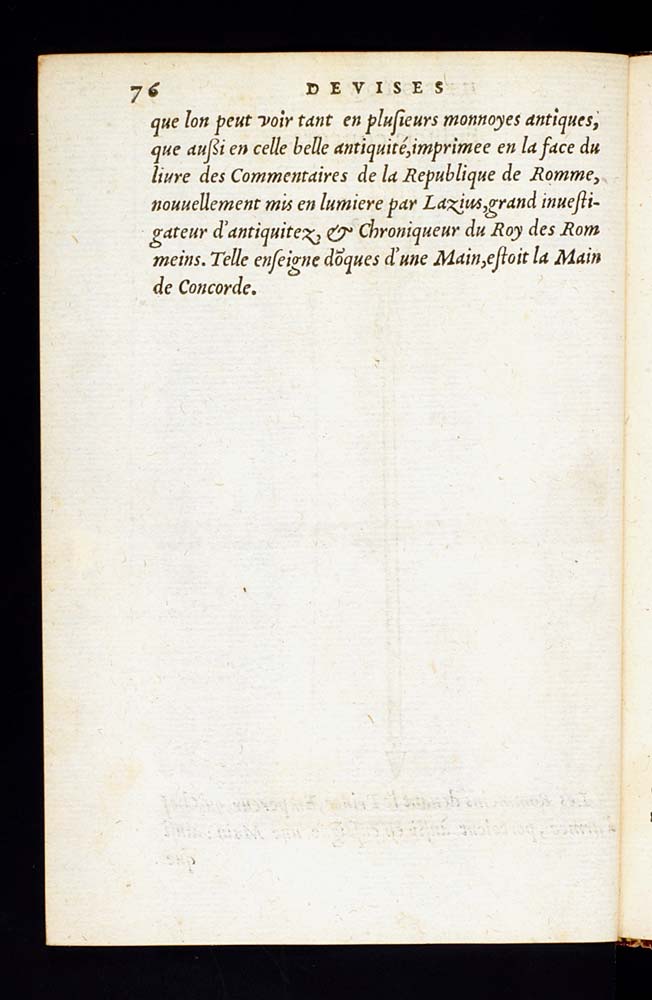 76 DEVISES
que lon peut voir tant en plusieurs monnoyes antiques,
que außi en celle belle antiquité, imprimee en la face du
liure des Commentaires de la Republique de Romme,
nouuellement mis en lumiere par Lazius, grand inuesti-
gateur d'antiquitez, & Chroniqueur du Roy des Rom
meins. Telle enseigne dõques d'une Main, estoit la Main
de Concorde.